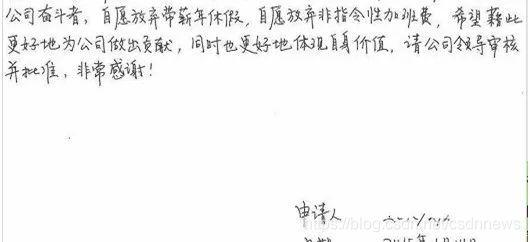 公司奋斗者，自愿放弃带薪年休假，自愿放弃非指令性加班费，希望藉此
更好地为公司做出贡献，同时也更好地体现自身价值，请公司领导审核
并批准，非常感谢！
申请人
https://blog.csdn.net/csdnnews